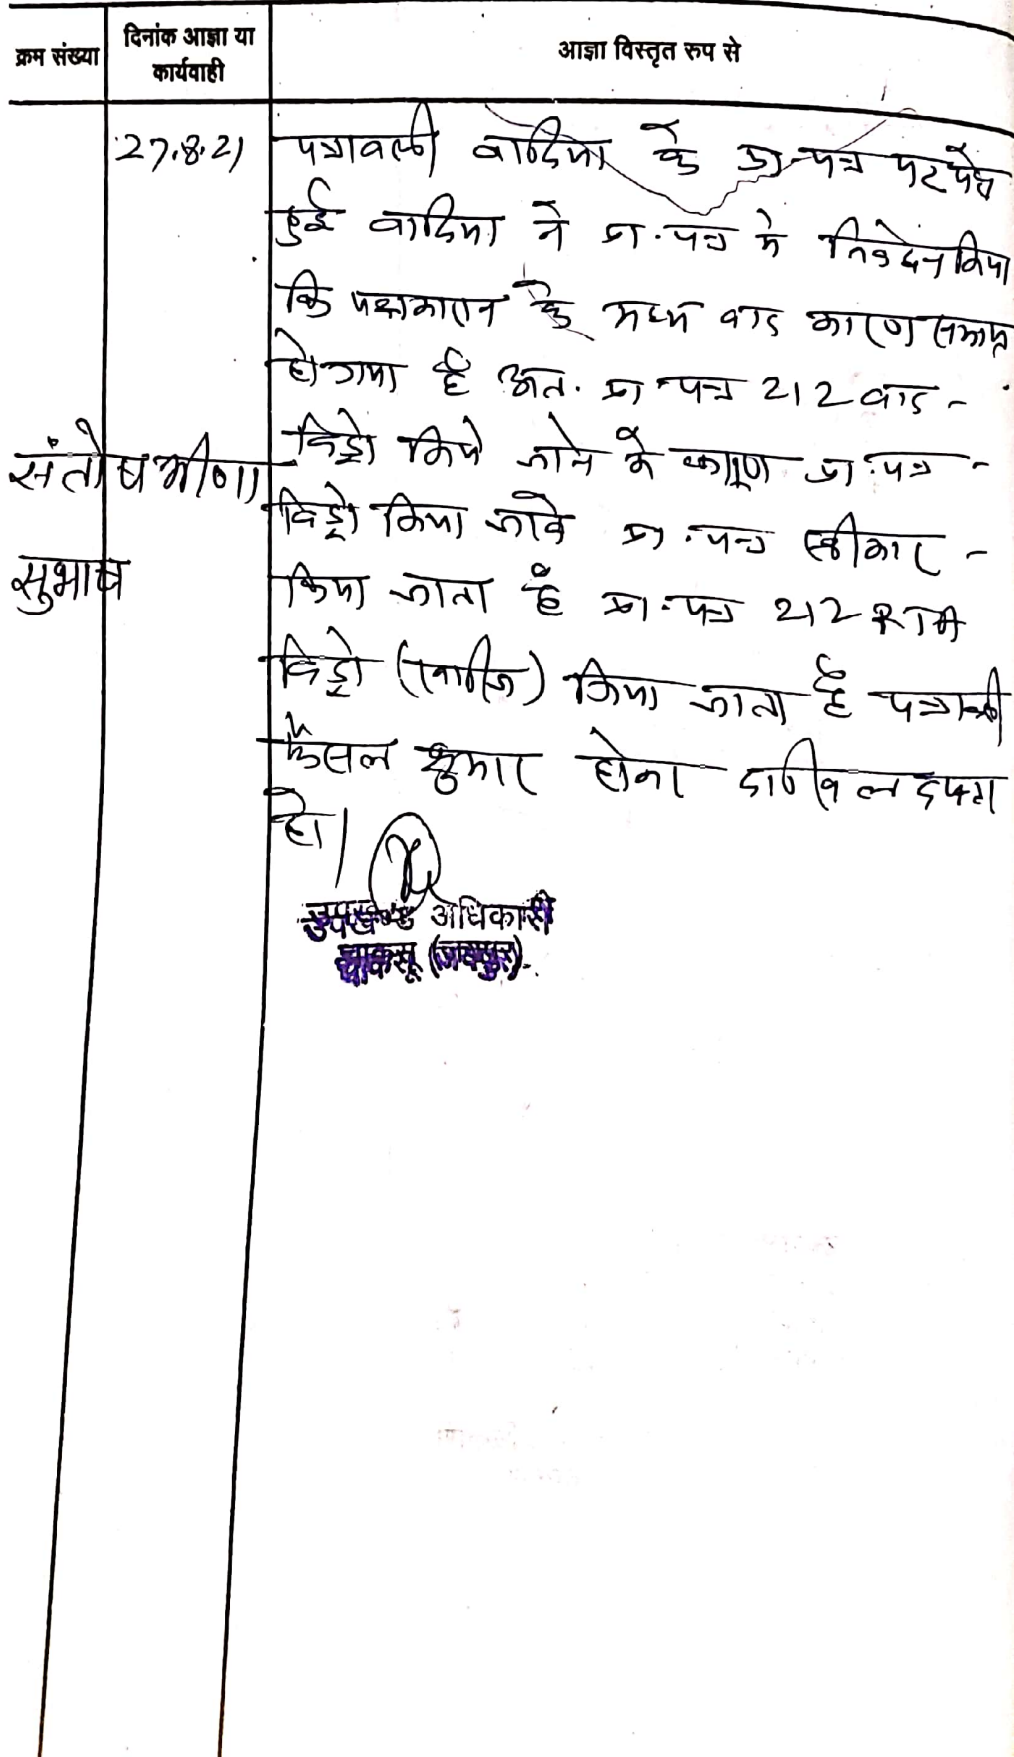 क्रम संख्या
दिनांक आज्ञा या
कार्यवाही
आज्ञा विस्तृत रूप से
27.8.21
पत्रावली वादिया के प्रा.पत्र पर पेश
हुई वादिया ने प्रा.पत्र मे निवेदन किया
कि पक्षकारान के मध्य वाद कारण समाप्त
हो गया है अतः प्रा.पत्र 212 वाद -
विड्रो किये जाने के कारण प्रा.पत्र -
विड्रो किया जावे प्रा.पत्र स्वीकार -
किया जाता है प्रा.पत्र 212 RTA
विड्रो (खारिज) किया जाता है पत्रावली
फैसल शुमार होकर दाखिल दफ्तर
हो।
संतोष मीणा
सुभाष
उपखण्ड अधिकारी
चाकसू (जयपुर)